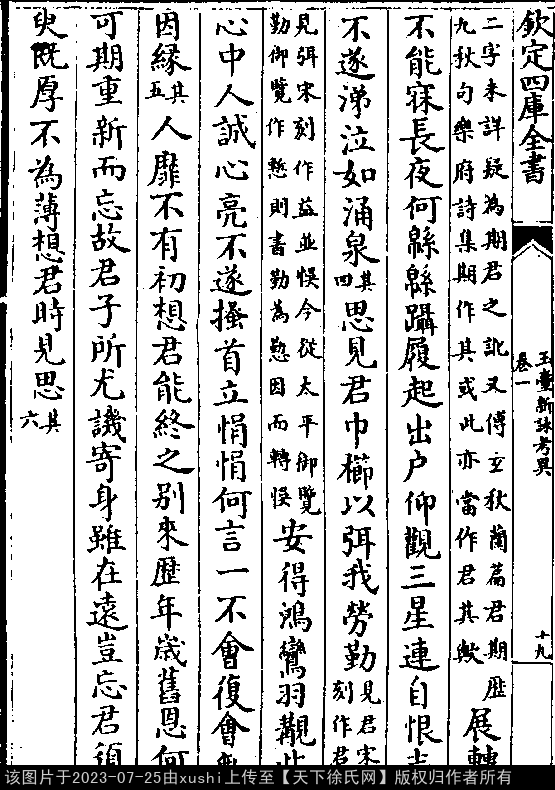 欽定四庫全書
玉臺新詠考異
卷一
十九
二字未詳疑為期君之訛又傅玄秋蘭篇君期歴
九秋句樂府詩集期作其或此亦當作君其歟
展轉
不能寐長夜何緜緜躡履起出户仰觀三星連自恨志
不遂涕泣如涌泉其四思見君巾櫛以弭我勞勤見君宋刻作君
見弭宋刻作益並悞今從太平御覽
勤御覽作慇則書勤為懃因而轉悞
安得鴻鸞羽覯此
心中人誠心亮不遂搔首立悁悁何言一不會復會無
因縁其五人靡不有初想君能終之别來歴年歲舊恩何
可期重新而忘故君子所尤譏寄身雖在遠豈忘君須
臾既厚不為薄想君時見思其六
该图片于2023-07-25由xushi上传至【天下徐氏网】版权归作者所有